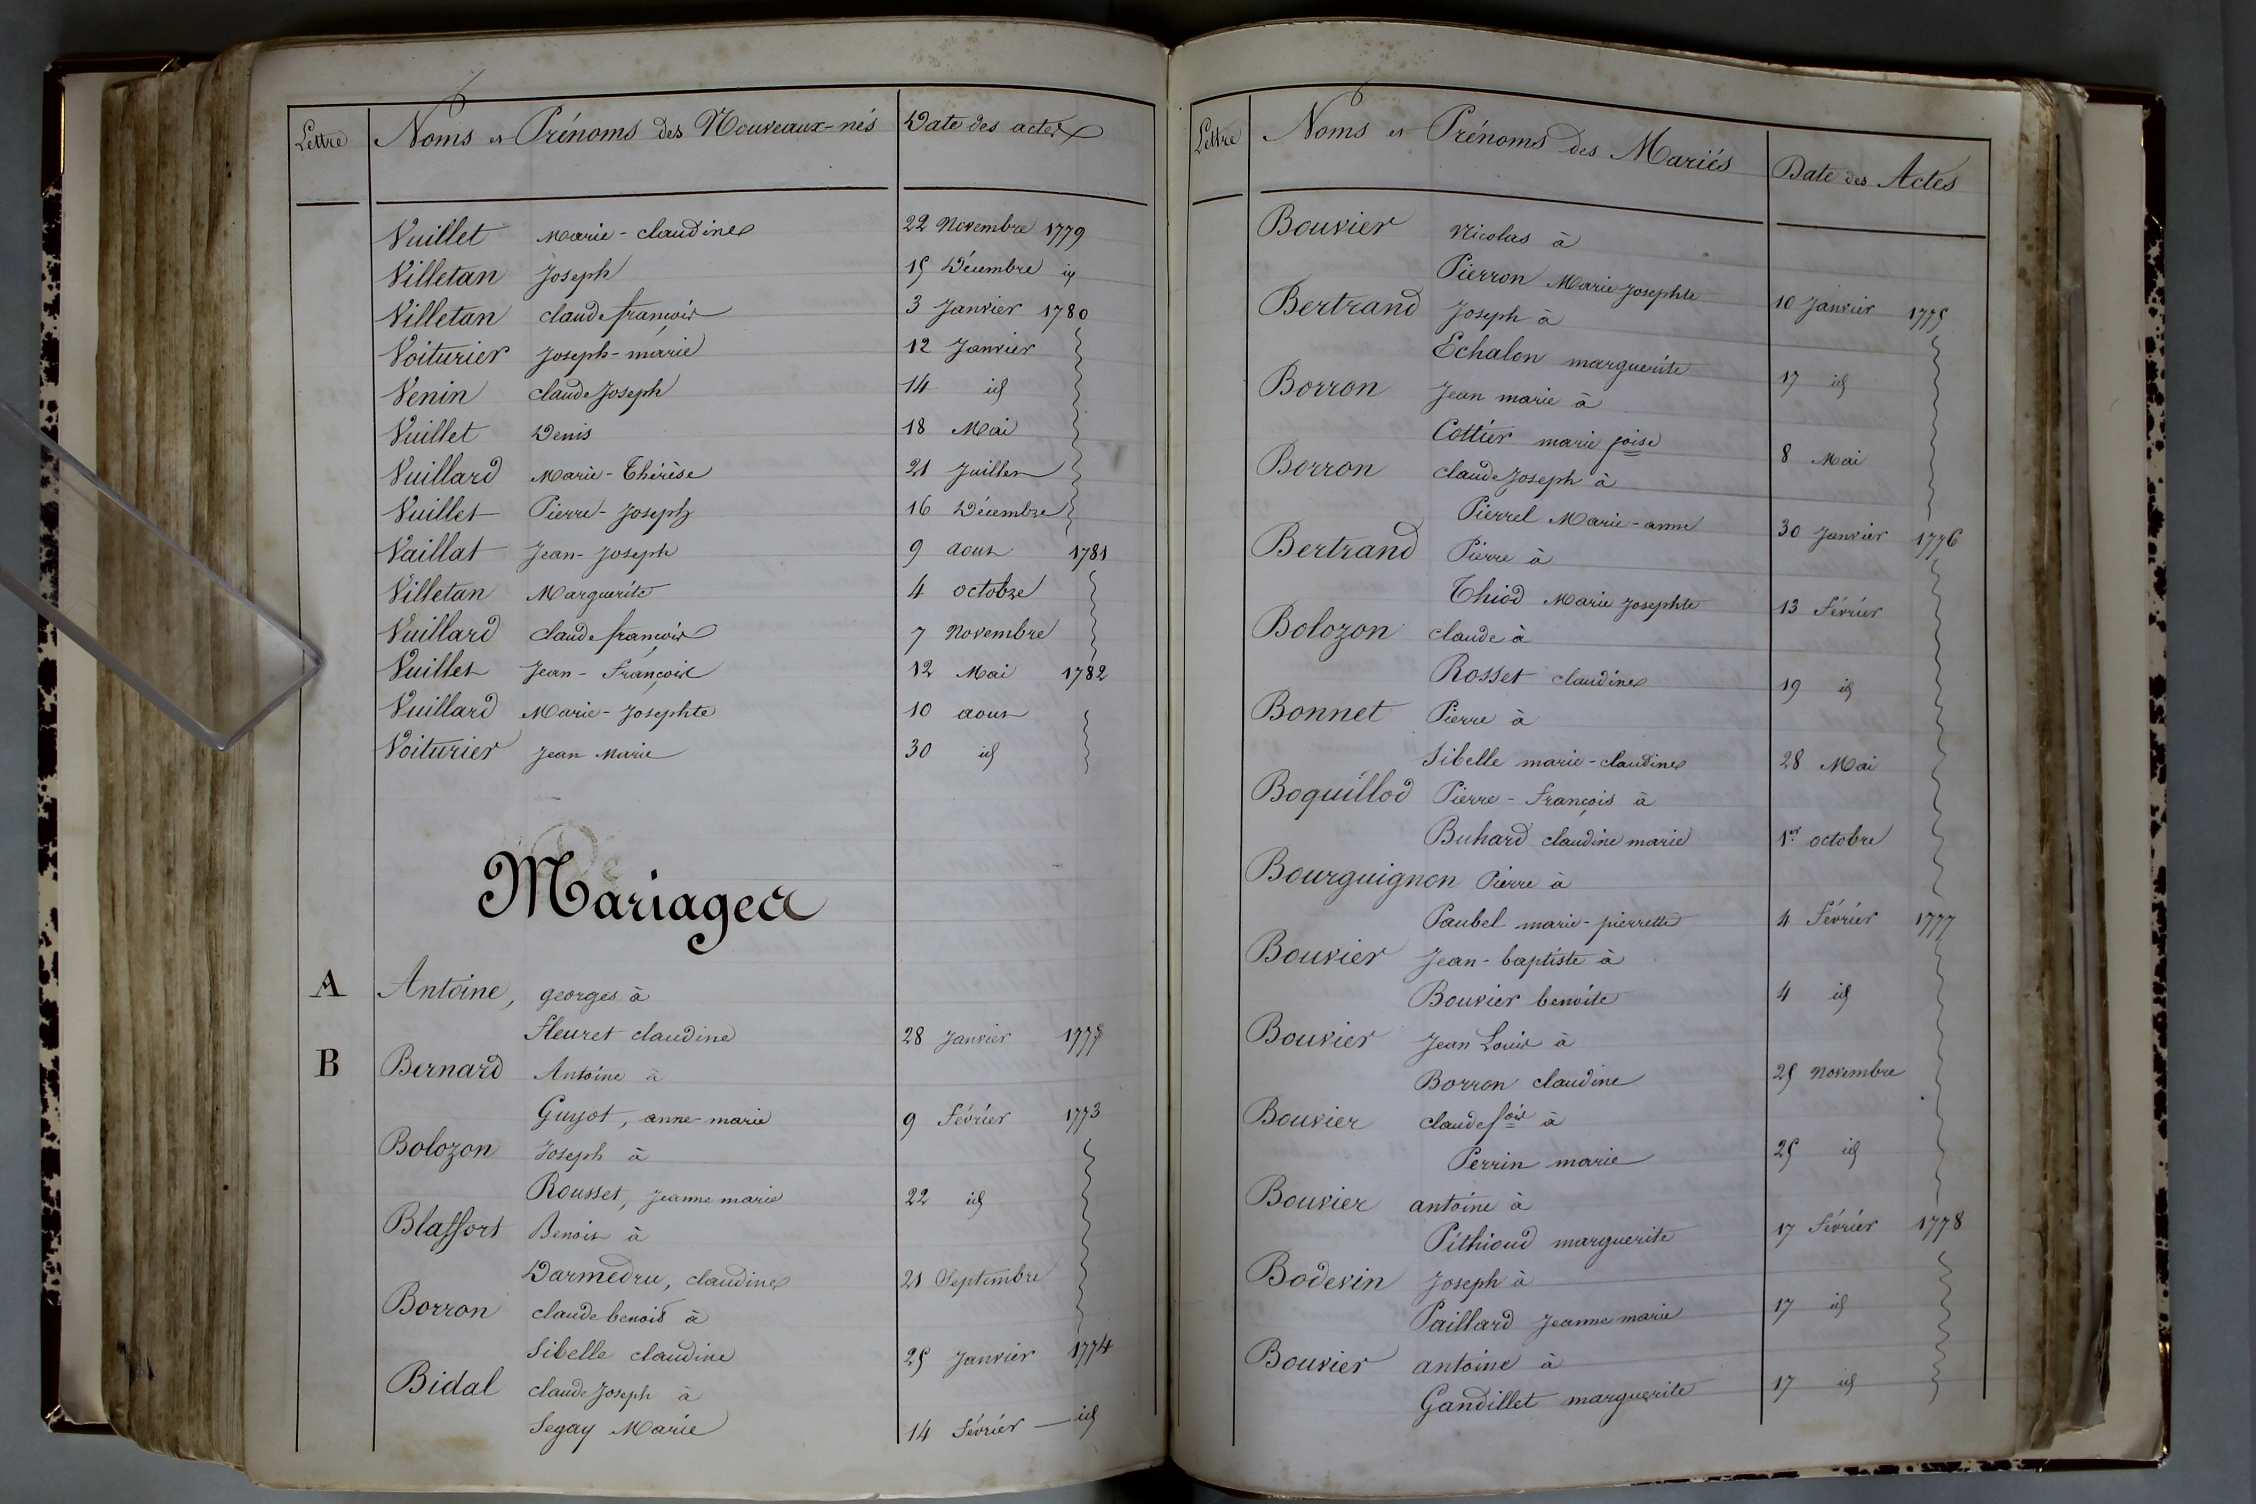 Lettre Noms et Prénoms des Nouveaux-nés Date des actes
Vuillet Marie-claudine 22 Novembre 1779
Villetan Joseph 15 Décembre id
Villetan claude françois 3 Janvier 1780
Voiturier Joseph-marie 12 Janvier
Venin claude Joseph 14 id
Vuillet Denis 18 Mai
Vuillard Marie-Thérèse 21 Juillet
Vuillet Pierre-Joseph 16 Décembre
Vaillat Jean-Joseph 9 aout 1781
Villetan Marguerite 4 octobre
Vuillard claude françois 7 Novembre
Vuillet Jean-François 12 Mai 1782
Vuillard Marie-Josephte 10 aout
Voiturier Jean Marie 30 id
Mariages
A Antoine, georges à
Fleuret claudine 28 Janvier
B Bernard Antoine à
Guyot, anne-marie 9 Février 1773
Bolozon Joseph à
Rousset, Jeanne marie 22 id
Blaffort Benoit à
Darmedru, claudine 21 Septembre
Borron claude benoit à
Sibelle claudine 25 Janvier 1774
Bidal claude Joseph à
Segay Marie 14 Février — id
Lettre Noms et Prénoms des Mariés Date des Actes
Bouvier Nicolas à
Pierron Marie Josephte 10 Janvier 1775
Bertrand Joseph à
Echalon marguerite 17 id
Borron Jean marie à
Cottier marie 8 Mai
Borron claude Joseph à
Pierrel Marie-anne 30 Janvier 1776
Bertrand Pierre à
Thiod Marie Josephte 13 Février
Bolozon claude à
Rosset claudine 19 id
Bonnet Pierre à
Sibelle marie-claudine 28 Mai
Boquillod Pierre-François à
Buhard claudine marie 1er octobre
Bourguignon Pierre à
Paubel marie-pierrette 4 Février 1777
Bouvier Jean-baptiste à
Bouvier benoite 4 id
Bouvier Jean Louis à
Borron claudine 25 Novembre
Bouvier claude fois à
Perrin marie 25 id
Bouvier antoine à
Pithioud marguerite 17 Février 1778
Bodevin Joseph à
Paillard Jeanne marie 17 id
Bouvier antoine à
Gandillet marguerite 17 id